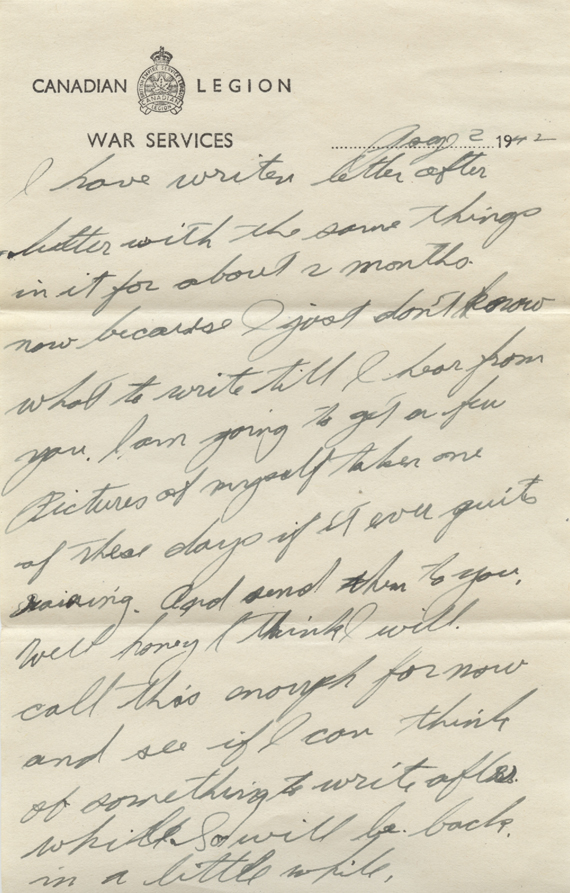 CANADIAN LEGION
WAR SERVICES
Aug 2 1942
I have writen letter after
letter with the same things
in it for about 2 months
now becarse I just don't know
what to write till I hear from
you. I am going to get a few
Pictures of myself taken one
of these days if it ever quits
raining. And send them to you.
Well honey I think I will
call this enough for now
and see if I can think
of something to write after
while. So will be back.
in a little while.